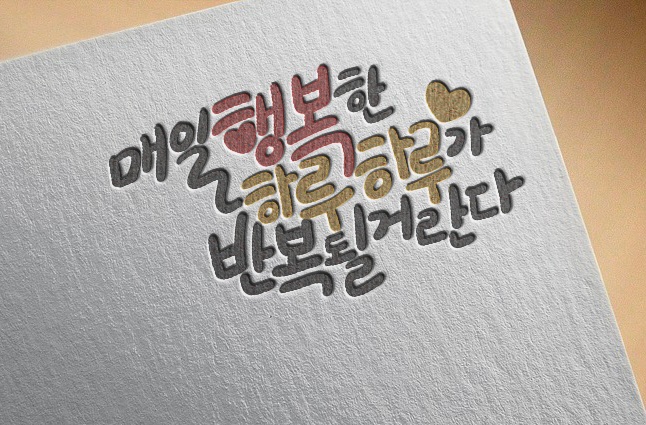 매일 행복한
하루하루가
반복될거란다